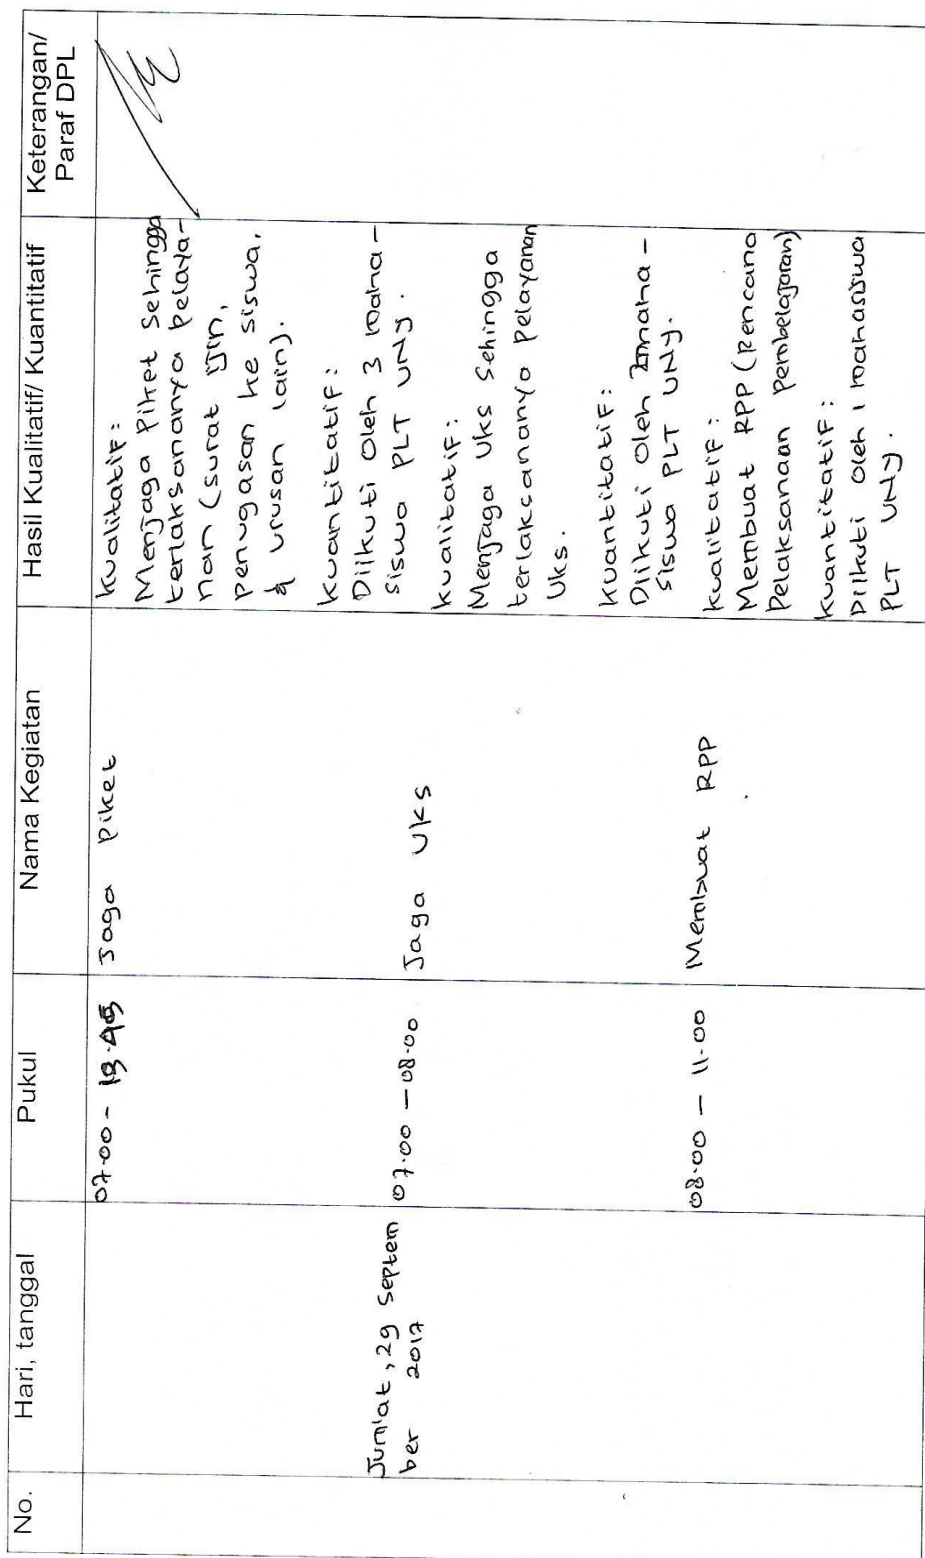 No.
Hari, tanggal
Pukul
Nama Kegiatan
Hasil Kualitatif/ Kuantitatif
Keterangan/
Paraf DPL
07.00 -
Jaga piket
kualitatif:
Menjaga piket sehingga
terlaksananya pelaya-
nan (surat ijin,
penugasan ke siswa,
& urusan lain).
kuantitatif:
Diikuti oleh 3 maha-
siswa PLT UNY.
Jum'at, 29 Septem
ber 2017
07.00 - 08.00
Jaga UKS
kualitatif:
Menjaga Uks sehingga
terlaksananya pelayanan
Uks.
kuantitatif:
Diikuti oleh maha-
siswa PLT UNY.
08.00 - 11.00
Membuat RPP
kualitatif:
Membuat RPP (Rencana
Pelaksanaan Pembelajaran)
kuantitatif:
Diikuti oleh 1 mahasiswa
PLT UNY.